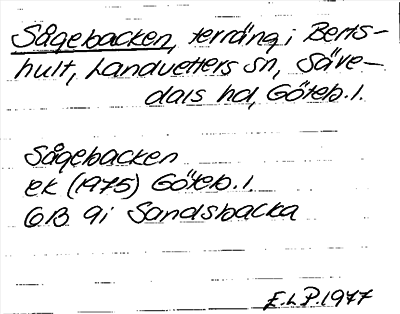 Sågebacken, terräng i Berts-
hult, Landvetters sn, Säve-
dals hd, Göteb. l.
Sågebacken
ek (1975) Göteb. l.
6B 9i Sandsbacka
E.L.P. 1977